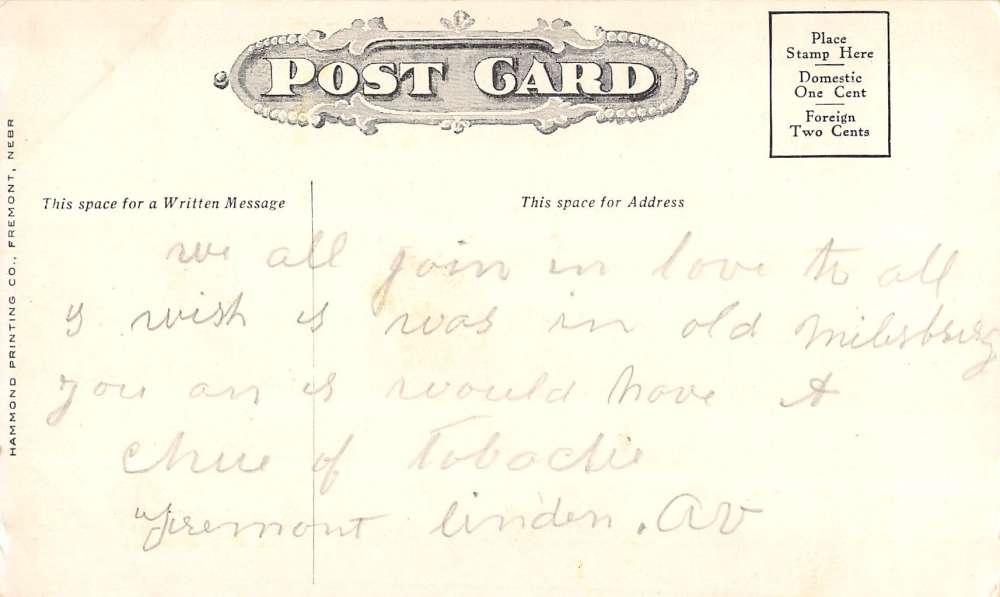 POST CARD
Place
Stamp Here
Domestic
One Cent
Foreign
Two Cents
HAMMOND PRINTING CO., FREMONT, NEBR
This space for a Written Message
This space for Address
we all join in love to all
wish was in old milesburg
you an would have A
chue of Tobackie
Fremont linden. Av